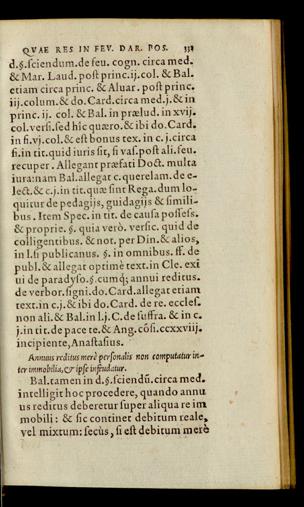 QVAE RES IN FEV. DAR. POS. 338
d.§.sciendum.de feu. cogn. circa med.
& Mar. Laud. post princ.ij.col. & Bal.
etiam circa princ. & Aluar. post princ.
iij.colum.& do.Card.circa med.j.& in
princ. ij. col. & Bal. in prælud. in xvij.
col.versi.sed hîc quæro.& ibi do.Card.
in fi.vj.col.& est bonus tex. in c.j.circa
fi.in tit.quid iuris sit, si vas.post ali.feu.
recuper. Allegant præfati Doct. multa
iura:nam Bal.allegat c.querelam.de e-
lect.& c.j.in tit.quæ sint Rega.dum lo-
quitur de pedagijs, guidagijs & simili-
bus. Item Spec. in tit. de causa posses.
& proprie. §. quia verò. versic. quid de
colligentibus. & not. per Din.& alios,
in l.si publicanus. §. in omnibus. ff. de
publ.& allegat optimè text.in Cle. exi
ui de paradyso.§.cumq; annui reditus.
de verbor.signi.do.Card.allegat etiam
text.in c.j.& ibi do.Card. de re. eccles.
non ali.& Bal.in l.j.C.de suffra. & in c.
j.in tit.de pace te.& Ang.cõsi.ccxxviij.
incipiente, Anastasius.
Annuus reditus merè personalis non computatur in-
ter immobilia,& ipse infeudatur.
Bal.tamen in d.§.sciendũ.circa med.
intelligit hoc procedere, quando annu
us reditus deberetur super aliqua re im
mobili: & sic continet debitum reale,
vel mixtum: secùs, si est debitum merè